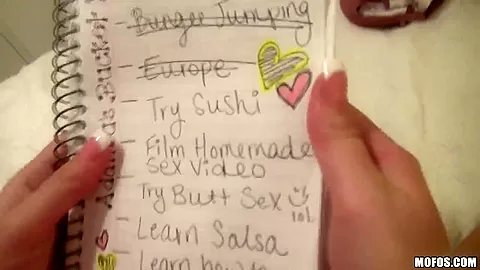 Bungee Jumping
Europe
Try Sushi
Film Homemade
Sex Video
Try Butt Sex
lol
Learn Salsa
Learn how
MOFOS.COM